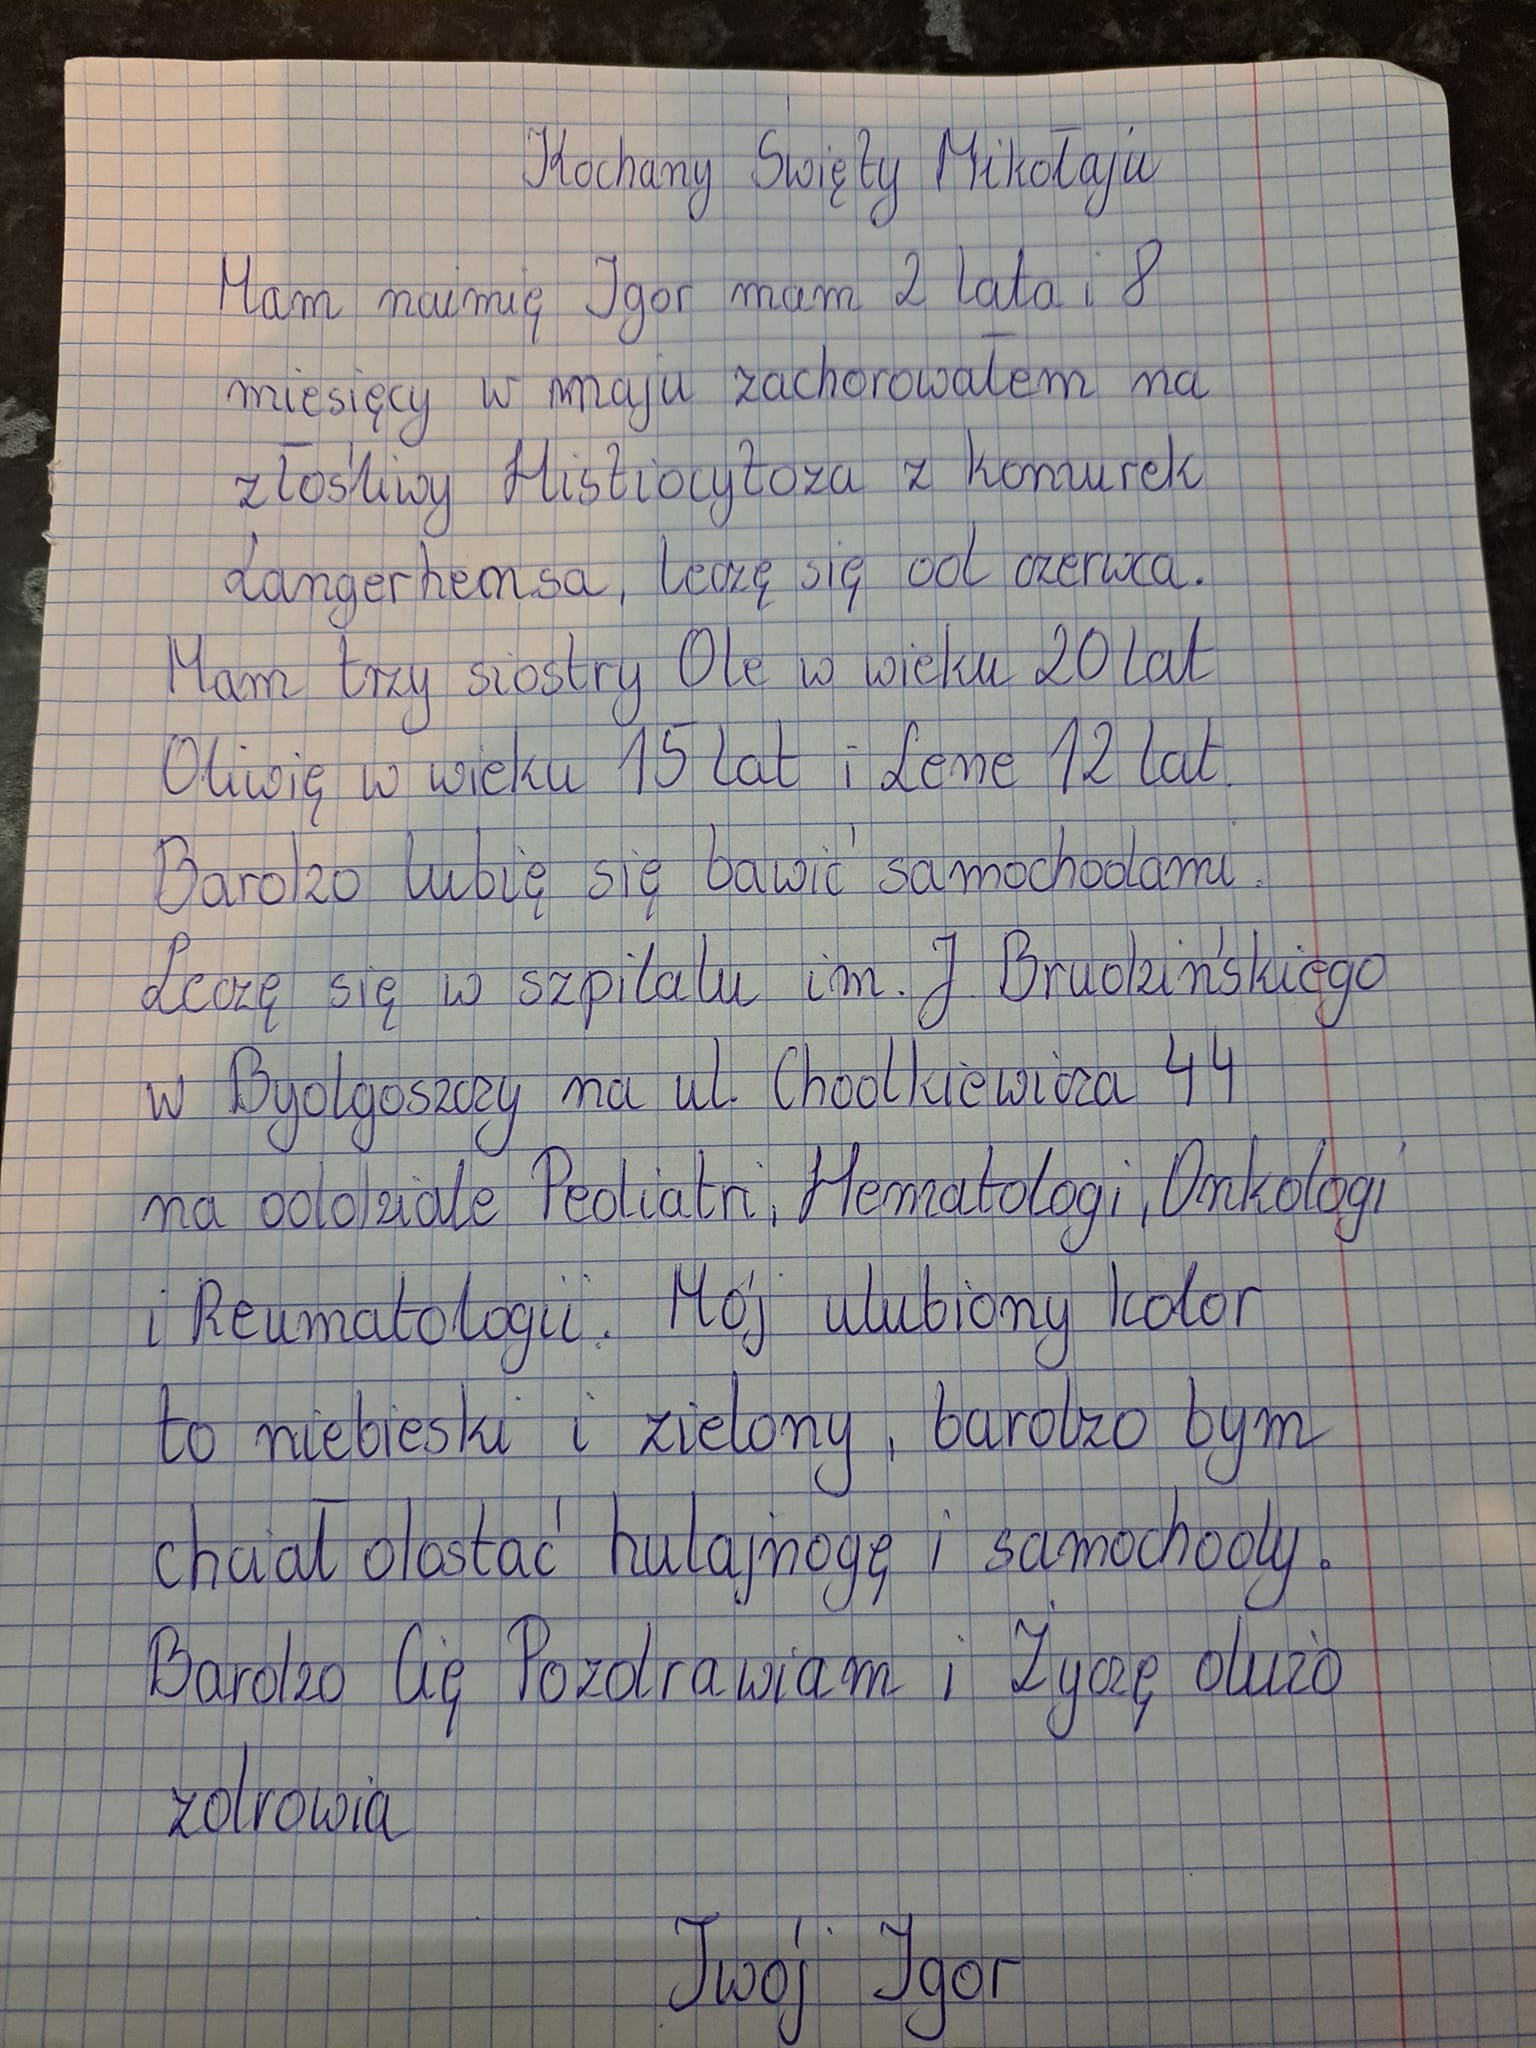 Kochany Święty Mikołaju
Mam naimię Igor mam 2 lata i 8
miesięcy w maju zachorowałem na
złośliwy Histiocytoza z komurek
Langerhensa, leczę się od czerwca.
Mam trzy siostry Ole w wieku 20 lat
Oliwię w wieku 15 lat i Lene 12 lat.
Bardzo lubię się bawić samochodami.
Leczę się w szpitalu im. J Brudzińskiego
w Bydgoszczy na ul. Chodkiewicza 44
na oddziale Pediatri, Hematologi, Onkologi
i Reumatologii. Mój ulubiony kolor
to niebieski i zielony, bardzo bym
chciał dostać hulajnogę i samochody.
Bardzo Cię Pozdrawiam i Życzę dużo
zdrowia
Twój Igor